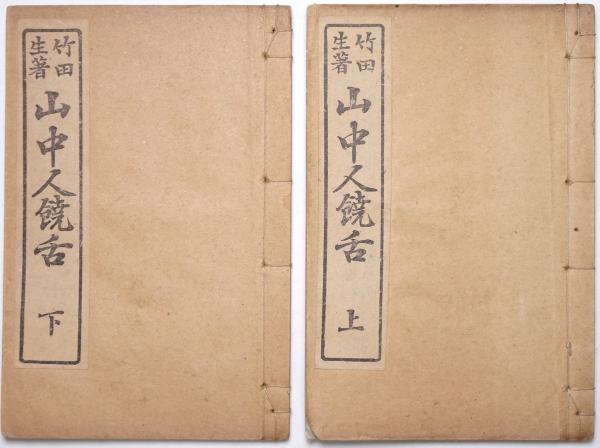 竹田
生著
山中人饒舌
上
竹田
生著
山中人饒舌
下